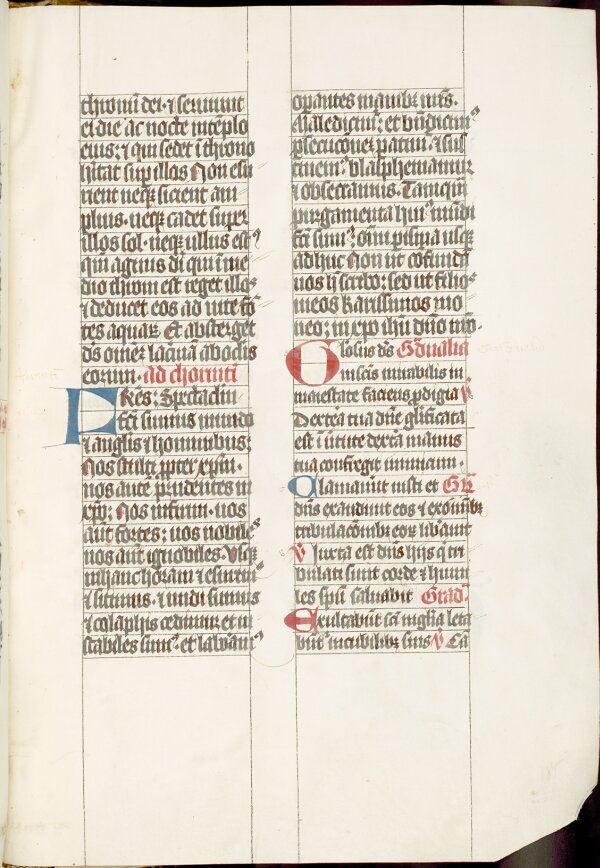 throni dei · ⁊ seruiunt
ei die ac nocte in templo
eius : ⁊ qui sedet ĩ throno
hĩtat sup illos Non esu
rient neqꝫ sicient am
plius · neqꝫ cadet super
illos sol · neqꝫ ullus estꝰ
qm̃ agnus di qui ĩ me
dio throni est reget illoˢ
⁊ deducet eos ad uite fõ
tes aquaꝝ Et absterget
d̃s omẽ lac̃mã ab oc̃lis
eorum · ad chorint̃
FRẽs : Spectaclm̃
fc̃i sumus mundo
⁊ anglis ⁊ hominibus :
Nos stulti ꝓpter xp̃m ·
uos autẽ prudentes in
xp̃o : Nos infirmi · uos
aut̃ fortes : uos nobileˢ
nos aut̃ ignobiles · Usqꝫ
in hanc horam ⁊ esurimꝰ
⁊ sitimus · ⁊ nudi sumus
⁊ colaphis cedimur et in
stabiles sumꝰ · et laboramꝰ
operantes manibꝫ nr̃is ·
Maledicimꝰ : et bn̄dicimꝰ
ꝑsecucionẽ patim̃ · ⁊ sus
tinemꝰ · blasphemamur
⁊ obsecramus · Tamquã
purgamenta huiꝰ mũdi
fc̃i sumꝰ : oim̃ pĩpsima usqꝫ
adhuc Non ut cõfundã
uos h̃ scribo : sed ut filioˢ
meos karissimos mo
neo : in xp̃o ih̃u dño nr̃o ·
Glosus d̃s Gđualia
in sc̃is mirabilis in
maiestate faciens ꝓdigia ℣
Dextera tua dñe glificata
est ĩ uirtute dext̃a manus
tua confregit inimicum ·
Clamauer̃t iusti et Gr̃
dñs exaudiuit eos ⁊ ex oĩbꝫ
tribulac̃onibꝫ eoꝝ lib̃auit
℣ Juxta est dñs hijs q̃ tri
bulati sunt corde ⁊ humi
les sp̃u saluabit Grad̃
Exultabũt sc̃i in gl̃ia leta
būt̃ in cubilibꝫ suis ℣ Cã